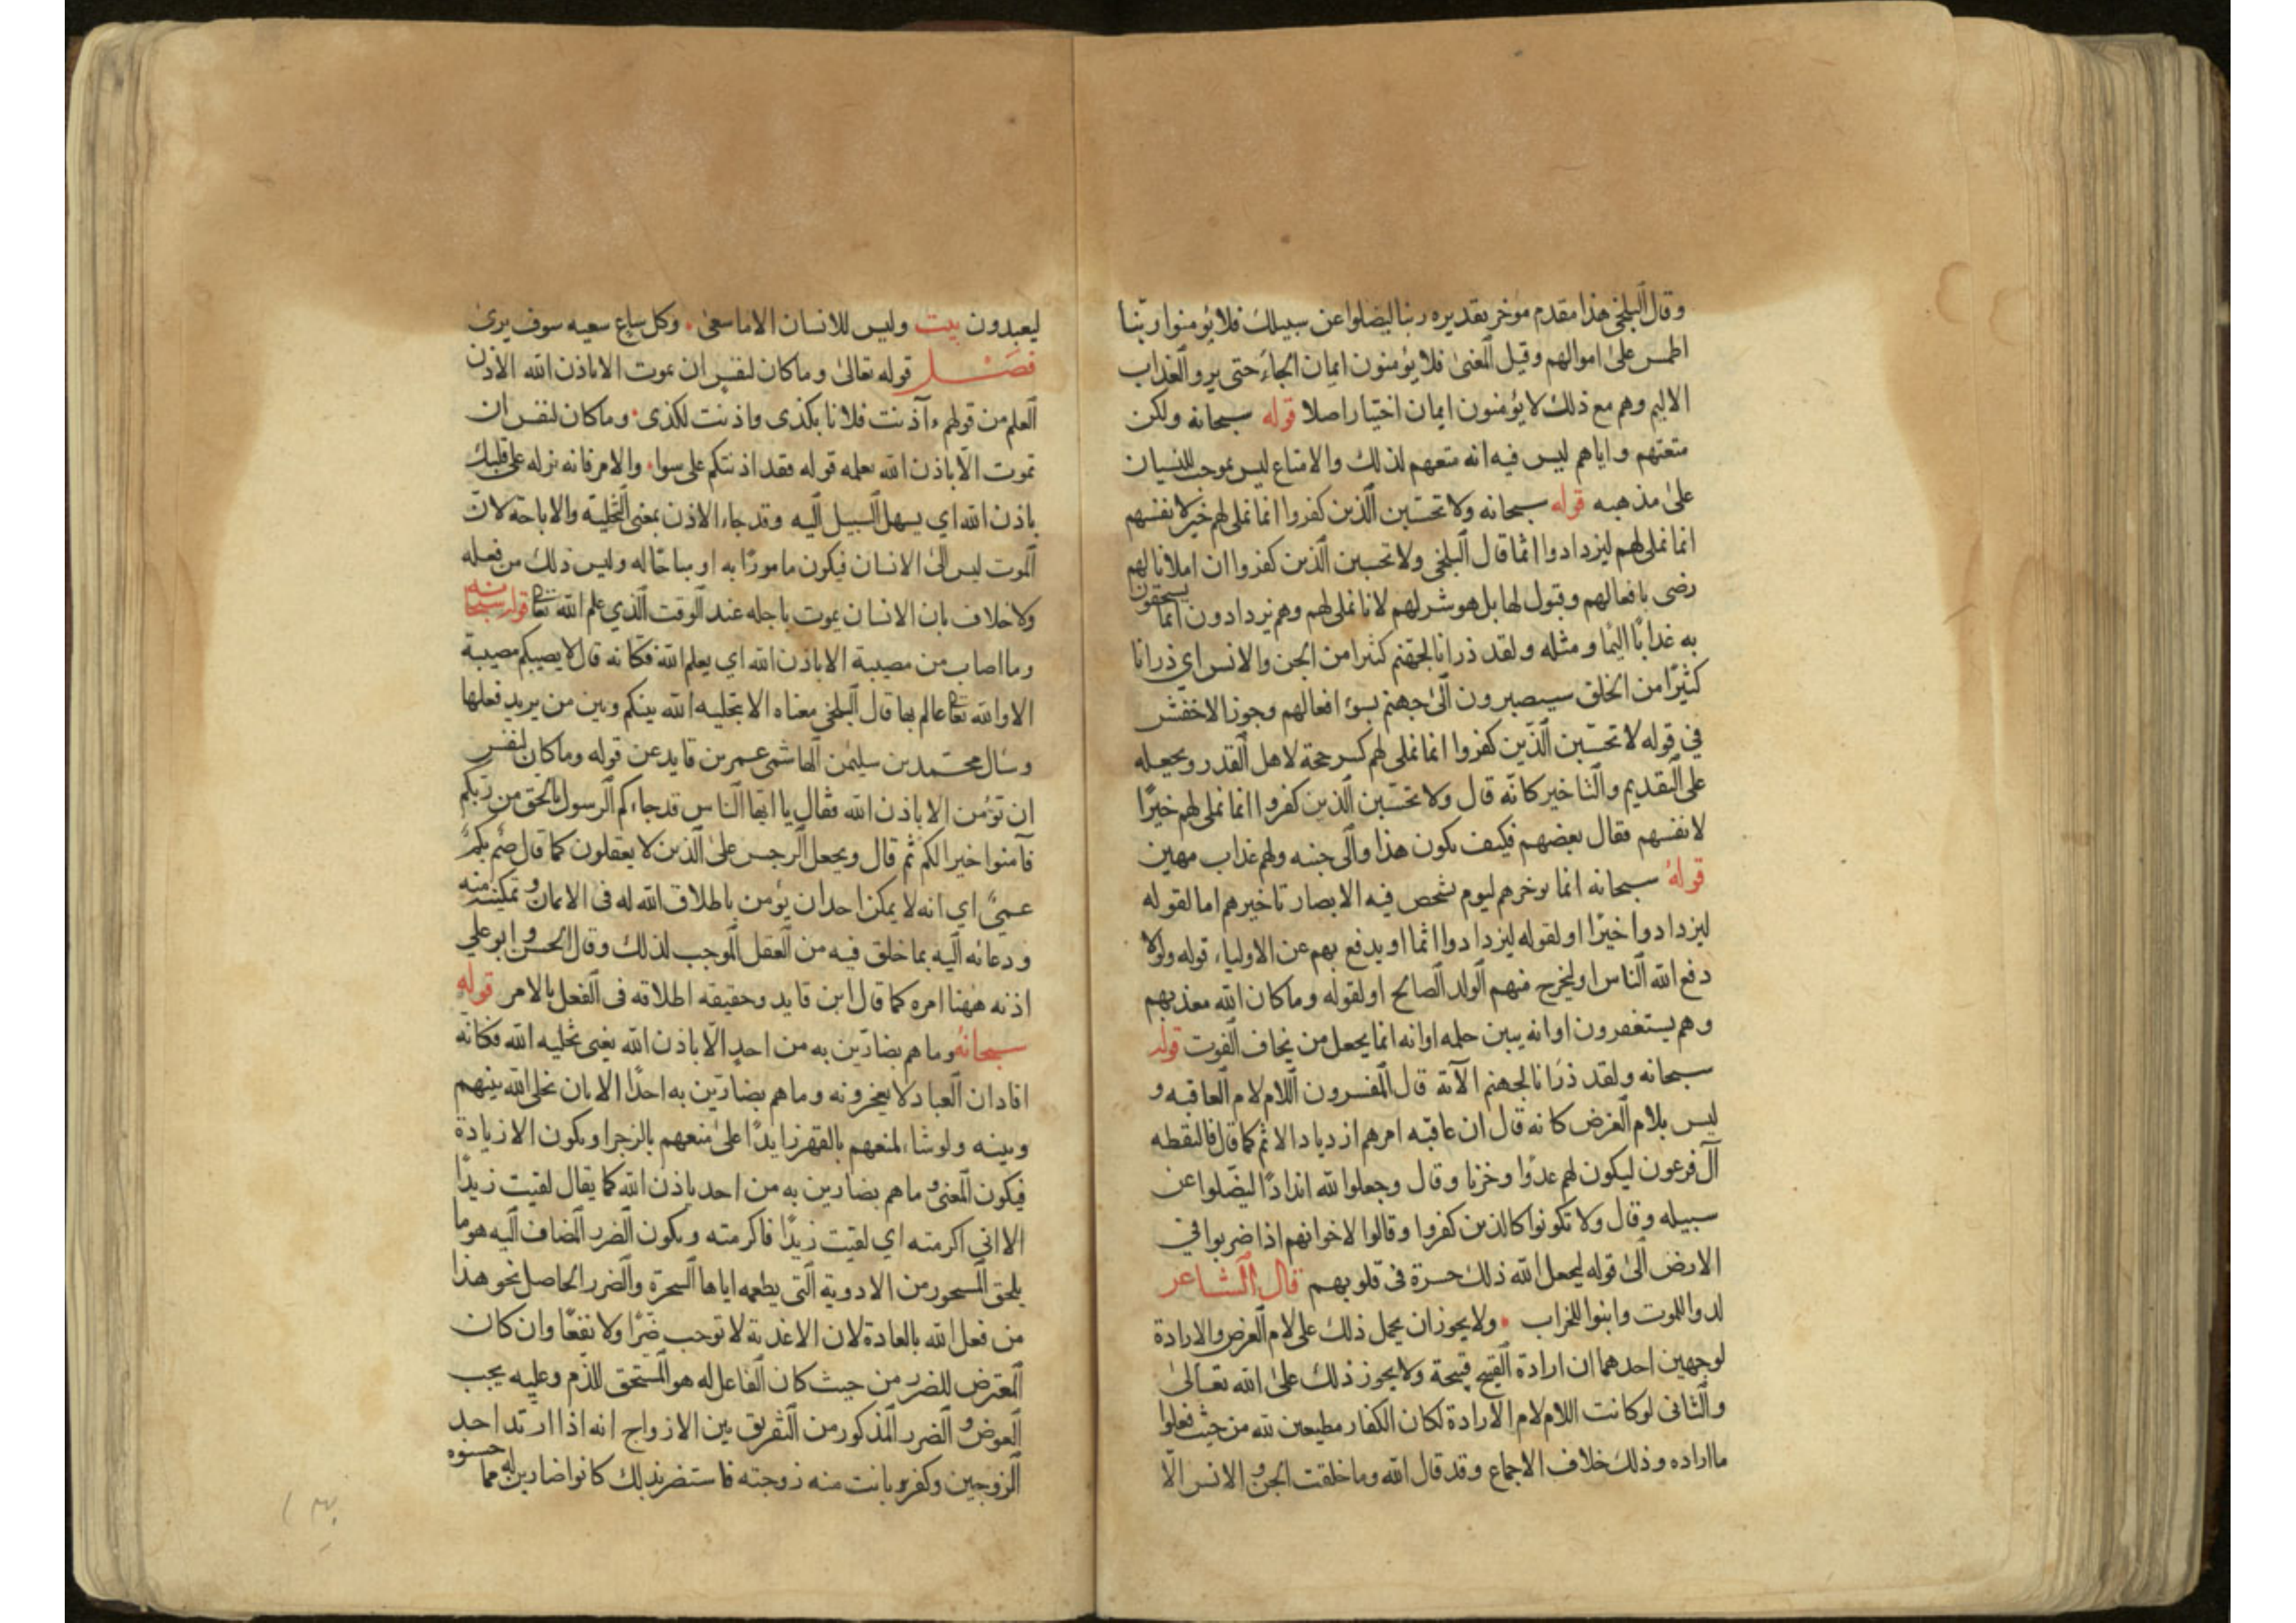 وقال البلخي هذا مقدم موخر تقديره ربنا ليضلوا عن سبيلك فلا يؤمنوا ربنا
اطمس على اموالهم وقيل المعنى فلا يؤمنون ايمان الجاء حتى يروا العذاب
الاليم وهم مع ذلك لا يؤمنون ايمان اختيار اصلا قوله سبحانه ولكن
متعتهم واياهم ليس فيه انه متعهم لذلك والامتاع ليس بموجب للنسيان
على مذهبه قوله سبحانه ولا تحسبن الذين كفروا انما نملي لهم خير لانفسهم
انما نملي لهم ليزدادوا اثما قال البلخي ولا تحسبن الذين كفروا ان املانا لهم
رضى بافعالهم وقبول لها بل هو شر لهم لانا نملي لهم وهم يزدادون اثما يستحقون
به عذابًا اليما ومثله ولقد ذرانا لجهنم كثيرا من الجن والانس اي ذرانا
كثيرًا من الخلق سيصيرون الى جهنم بسوء افعالهم وجوز الاخفش
في قوله لا تحسبن الذين كفروا انما نملي لهم كسر حجة لاهل القدر ويجعله
على التقديم والتاخير كانه قال ولا تحسبن الذين كفروا انما نملي لهم خيرًا
لانفسهم فقال بعضهم فكيف يكون هذا والى جنبه ولهم عذاب مهين
قوله سبحانه انما يوخرهم ليوم تشخص فيه الابصار تاخيرهم اما لقوله
ليزدادوا خيرًا او لقوله ليزدادوا اثما او يدفع بهم عن الاولياء قوله ولولا
دفع الله الناس او ليخرج منهم الولد الصالح او لقوله وما كان الله معذبهم
وهم يستغفرون او انه يبين حلمه او انه انما يعجل من يخاف الفوت قوله
سبحانه ولقد ذرانا لجهنم الآية قال المفسرون اللام لام العاقبه و
ليس بلام الغرض كانه قال ان عاقبه امرهم ازدياد الاثم كما قال فالتقطه
آل فرعون ليكون لهم عدوًا وحزنا وقال وجعلوا لله اندادًا ليضلوا عن
سبيله وقال ولا تكونوا كالذين كفروا وقالوا لاخوانهم اذا ضربوا في
الارض الى قوله ليجعل الله ذلك حسرة في قلوبهم قال الشاعر
لدوا للموت وابنوا للخراب ۰ ولا يجوز ان يحمل ذلك على لام الغرض والارادة
لوجهين احدهما ان ارادة القبيح قبيحة ولا يجوز ذلك على الله تعالى
والثاني لو كانت اللام لام الارادة لكان الكفار مطيعين لله من حيث فعلوا
ما اراده وذلك خلاف الاجماع وقد قال الله وما خلقت الجن والانس الّا
ليعبدون بيت وليس للانسان الا ما سعى ۰ وكل ساع سعيه سوف يرى
فصل قوله تعالى وما كان لنفس ان تموت الا باذن الله الاذن
العلم من قولهم ءآذنت فلانا بكذى واذنت لكذى ۰ وما كان لنفس ان
تموت الّا باذن الله بعلمه قوله فقد اذنتكم على سوا ۰ والامر فانه نزله على قلبك
باذن الله اي يسهل السبيل اليه وقد جاء الاذن بمعنى التخلية والاباحة لان
الموت ليس الى الانسان فيكون مامورًا به او مباحًا له وليس ذلك من فعله
ولا خلاف بان الانسان يموت باجله عند الوقت الذي علم الله تعالى منه قوله سبحانه
وما اصاب من مصيبة الا باذن الله اي يعلم الله فكانه قال لا يصيبكم مصيبة
الا والله تعالى عالم بها قال البلخي معناه الا بتخليه الله بينكم وبين من يريد فعلها
وسال محمد بن سليمن الهاشمي عمر بن قايد عن قوله وما كان لنفس
ان تؤمن الا باذن الله فقال يا ايها الناس قد جاءكم الرسول بالحق من ربكم
فآمنوا خيرا لكم ثم قال ويجعل الرجس على الذين لا يعقلون كما قال صم بكم
عميٌ اي انه لا يمكن احد ان يؤمن باطلاق الله له في الايمان وتمكينه منه
ودعائه اليه بما خلق فيه من العقل الموجب لذلك وقال الحسن وابو علي
اذنه ههنا امره كما قال ابن قايد وحقيقه اطلاقه في الفعل بالامر قوله
سبحانه وما هم بضارّين به من احدٍ الّا باذن الله يعني بخليه الله فكانّه
افاد ان العباد لا يعجزونه وما هم بضارّين به احدًا الا بان يخلي الله بينهم
وبينه ولو شاء لمنعهم بالقهر زايدًا على منعهم بالزجر او يكون الا زيادة
فيكون المعنى وما هم بضارين به من احد باذن الله كما يقال لقيت زيدًا
الا اني اكرمته اي لقيت زيدًا فاكرمته ويكون الضرر المضاف اليه هو ما
يلحق المسحور من الادوية التي يطعمه اياها السحرة والضرر الحاصل نحو هذا
من فعل الله بالعادة لان الاغذية لا توجب ضرًا ولا نفعًا وان كان
المعترض للضرر من حيث كان الفاعل له هو المستحق للذم وعليه يجب
العوض والضرر المذكور من التفريق بين الازواج انه اذا ارتد احد
الزوجين وكفر وبانت منه زوجته فاستضر بذلك كانوا ضارين له مما حسنوه